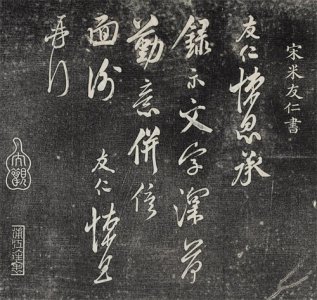 宋米友仁書
友仁悚息承
錄示文字深荷
勤意併俟
面謝
友仁悚息
再行